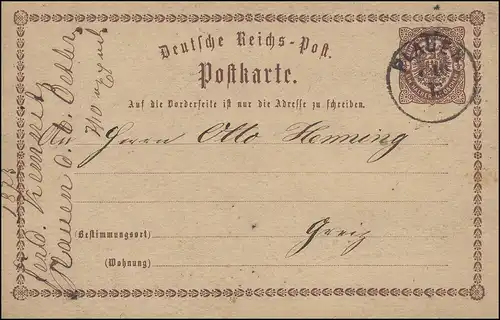 Deutsche Reichs-Post.
Postkarte.
Auf die Vorderseite ist nur die Adresse zu schreiben.
PLAUEN
An Herrn Otto Henning
Greiz
(Bestimmungsort)
(Wohnung)
1873
Ferd.
Plauen d.